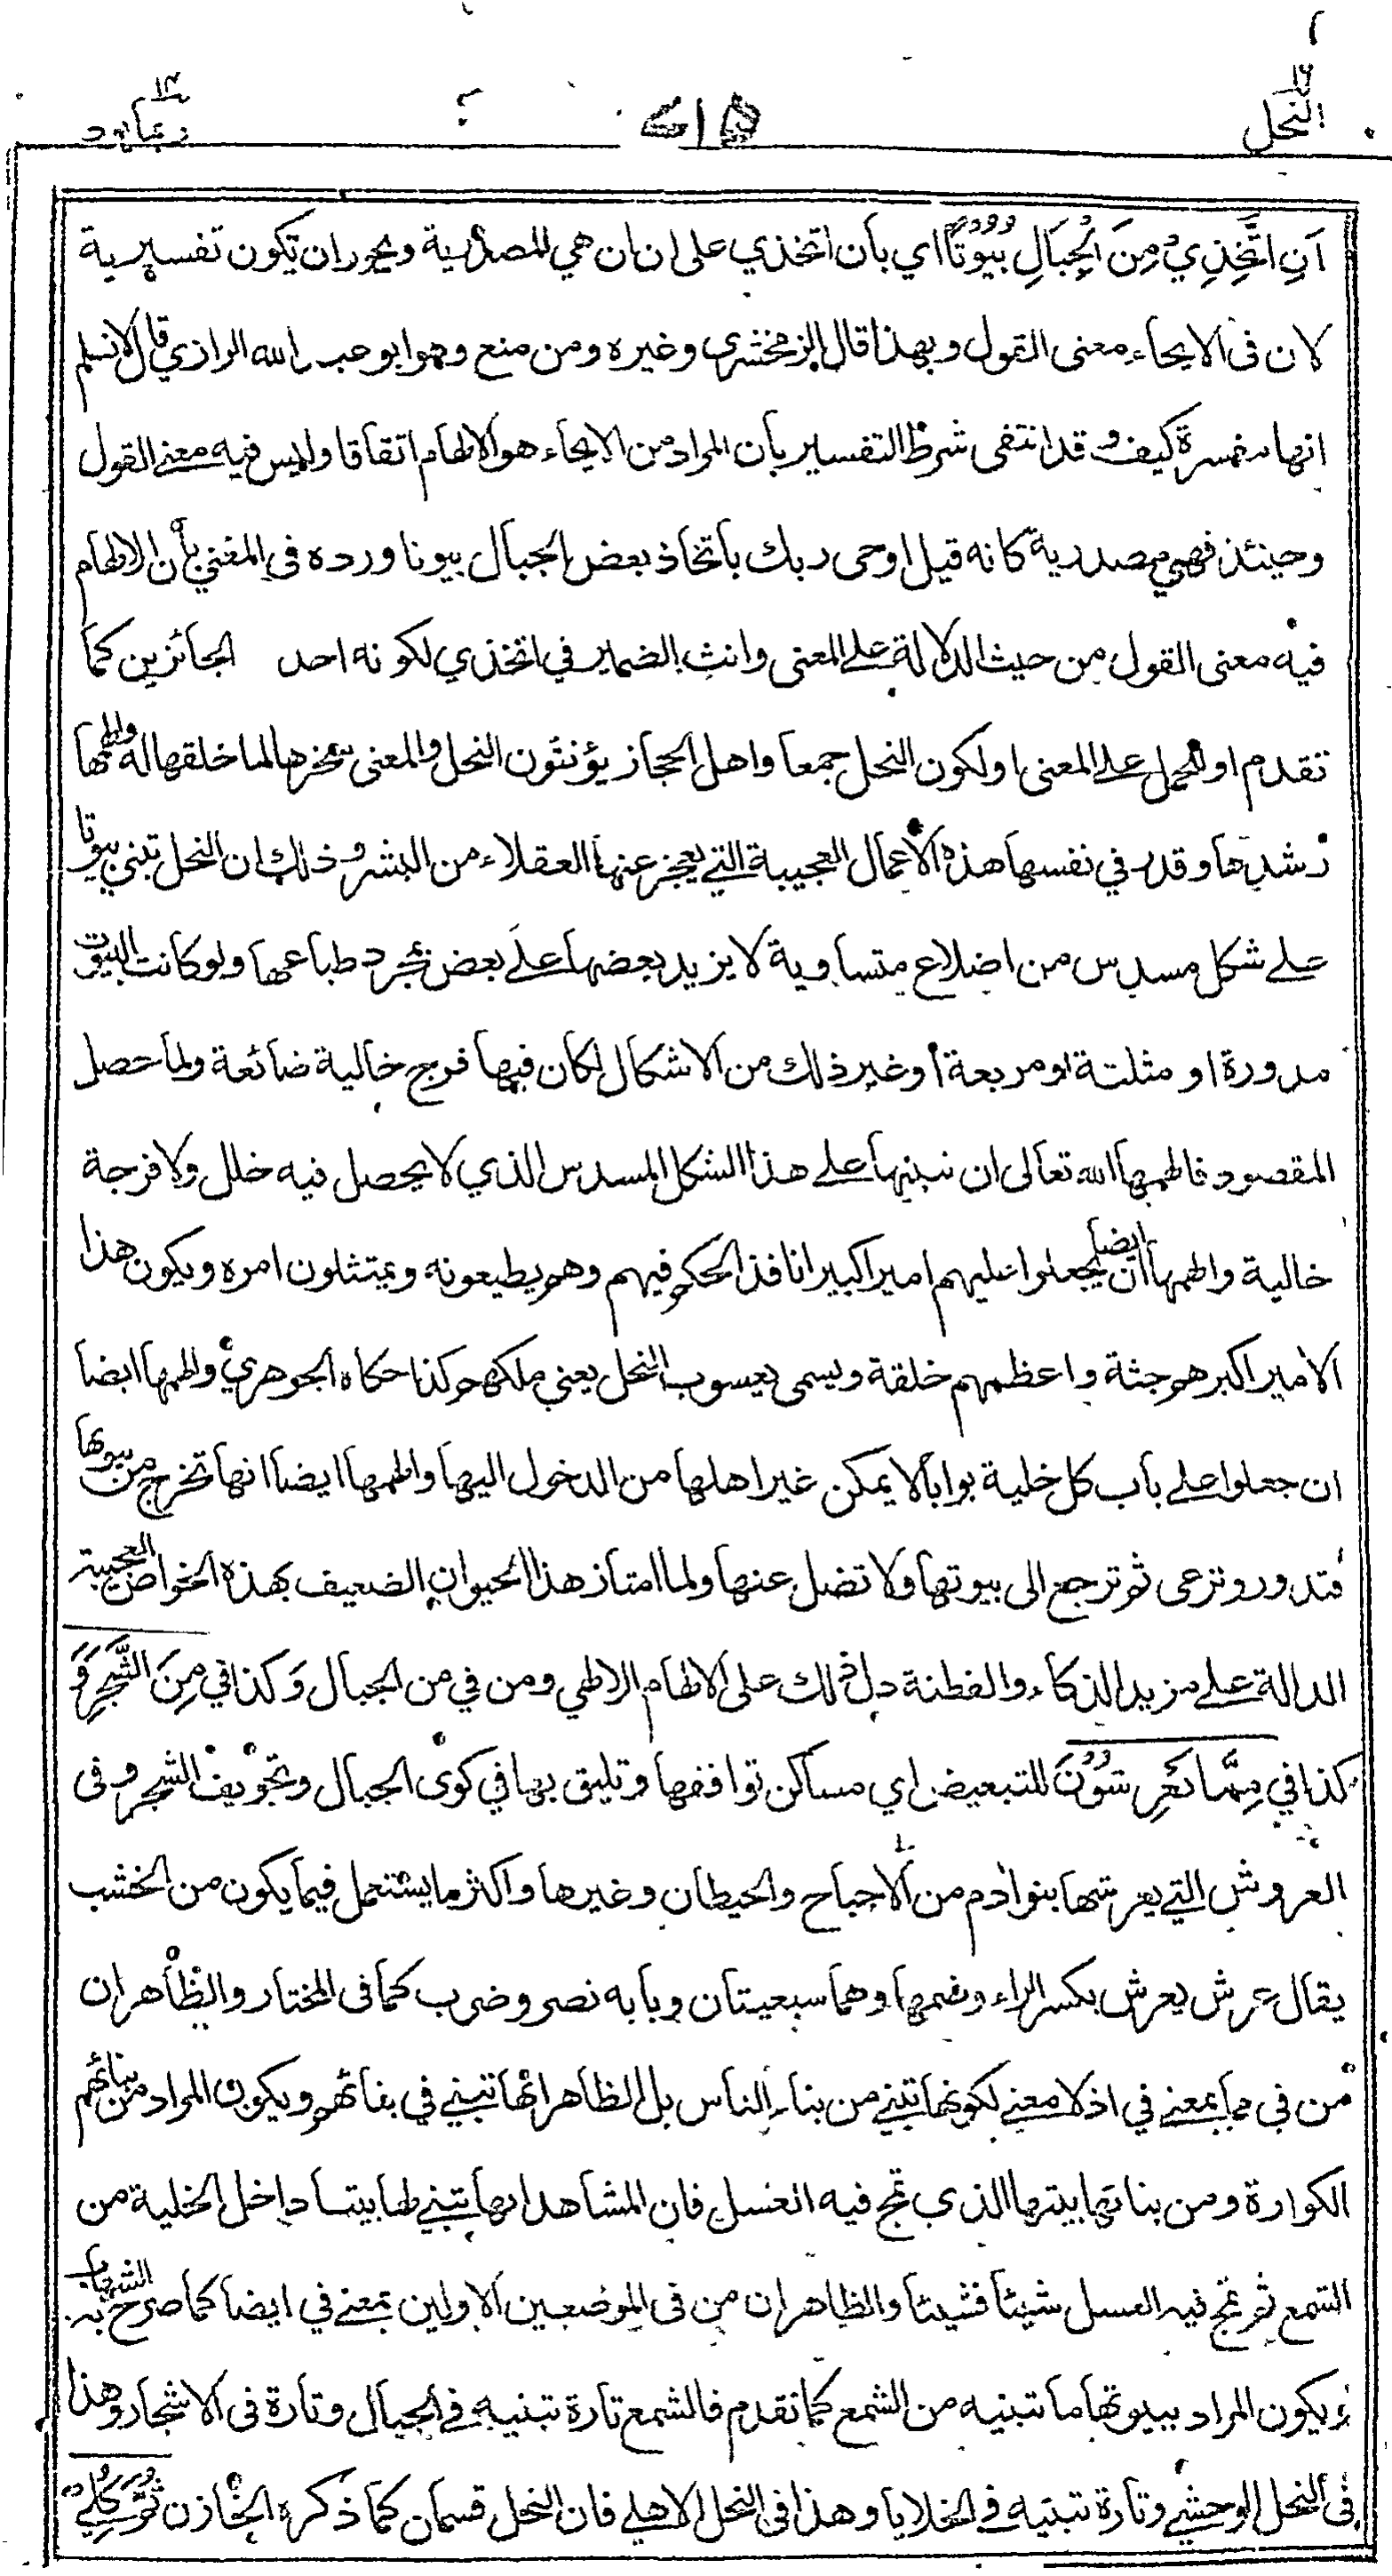 النحل ١٦
٥١٥
ربما ١٤
اَنِ اتَّخِذِيْ مِنَ الْجِبَالِ بُيُوْتًا اي بأن اتخذي على ان ان هي المصدرية ويجوز ان تكون تفسيرية
لان في الايحاء معنى القول وبهذا قال الزمخشري وغيره ومن منع وهو ابو عبد الله الرازي قال لا نسلم
انها مفسرة كيف وقد انتفى شرط التفسير بأن المراد من الايحاء هو الالهام اتفاقا وليس فيه معنى القول
وحينئذ فهي مصدرية كانه قيل اوحى ربك باتخاذ بعض الجبال بيوتا ورده في المغني بأن الالهام
فيه معنى القول من حيث الدلالة على المعنى وانث الضمير في اتخذي لكونه احد الجائزين كما
تقدم او للحمل على المعنى او لكون النحل جمعا واهل الحجاز يؤنثون النحل والمعنى سخرها لما خلقها له والهمها
رشدها وقدر في نفسها هذه الأعمال العجيبة التي يعجز عنها العقلاء من البشر وذلك ان النحل تبني بيوتا
على شكل مسدس من اضلاع متساوية لا يزيد بعضها على بعض بمجرد طباعها ولو كانت البيوت
مدورة او مثلثة او مربعة أو غير ذلك من الاشكال لكان فيها فرج خالية ضائعة ولما حصل
المقصود فالهمها الله تعالى ان تبنيها على هذا الشكل المسدس الذي لا يحصل فيه خلل ولا فرجة
خالية والهمها ايضا أن يجعلوا عليهم اميرا كبيرا نافذ الحكم فيهم وهم يطيعونه ويمتثلون امره ويكون هذا
الامير اكبرهم جثة واعظمهم خلقة ويسمى يعسوب النحل يعني ملكهم كذا حكاه الجوهري والهمها ايضا
ان جعلوا على باب كل خلية بوابا لا يمكن غير اهلها من الدخول اليها والهمها ايضا انها تخرج من بيوتها
فتدور وترعى ثم ترجع الى بيوتها ولا تضل عنها ولما امتاز هذا الحيوان الضعيف بهذه الخواص العجيبة
الدالة على مزيد الذكاء والفطنة دل ذلك على الالهام الالهي ومن في من الجبال وَكذا في مِنَ الشَّجَرِ وَ
كذا في مِمَّا يَعْرِشُوْنَ للتبعيض اي مساكن توافقها وتليق بها في كوى الجبال وتجويف الشجر وفي
العروش التي يعرشها بنو ادم من الأجباح والحيطان وغيرها واكثر ما يستعمل فيما يكون من الخشب
يقال عرش يعرش بكسر الراء وضمها وهما سبعيتان وبابه نصر وضرب كما في المختار والظاهر ان
من في مما بمعنى في اذ لا معنى لكونها تبني من بناء الناس بل الظاهر انها تبني في بنائهم ويكون المراد من بنائهم
الكوارة ومن بنائها بيتها الذي تمج فيه العسل فان المشاهد انها تبني لها بيتا داخل الخلية من
الشمع ثم تمج فيه العسل شيئا فشيئا والظاهر ان من في الموضعين الاولين بمعنى في ايضا كما صرح به الشهاب
ويكون المراد ببيوتها ما تبنيه من الشمع كما تقدم فالشمع تارة تبنيه في الجبال وتارة في الاشجار وهذا
في النحل الوحشي وتارة تبنيه في الخلايا وهذا في النحل الاهلي فان النحل قسمان كما ذكره الخازن ثُمَّ كُلِيْ